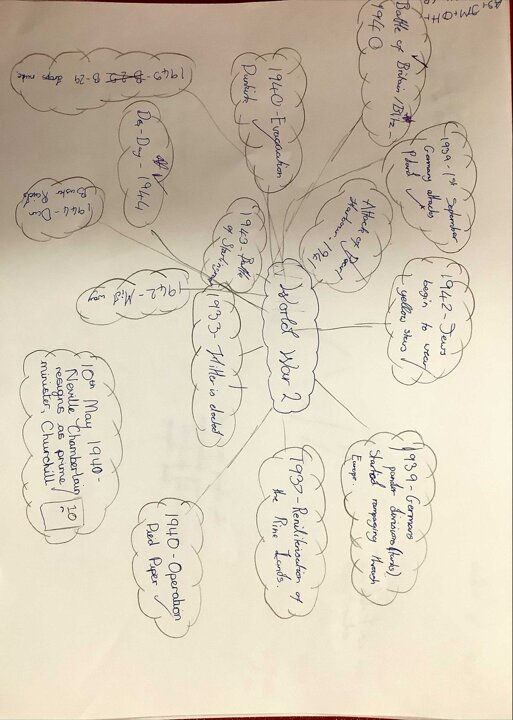 World War 2
1940 - Evacuation
Dunkirk
Battle of Britain/Blitz -
1940
1939 - 1st September
Germany attacks
Poland
Attack of
1942 - Jews
begin to wear
yellow stars
1939 - Germans
panzer divisions (tanks)
Started rampaging through
Europe.
1937 - Remiliterisation of
the Rine Lands.
1940 - Operation
Pied Piper
10th May 1940 -
Neville Chamberlain
resigns as prime
minister, Churchill
10
1933 - Hitler is elected
1942 - Mid
way
1943 - Battle
of
1944 - Dam
Buster Raids
Day - 1944
1945 - B-29 drops nuke